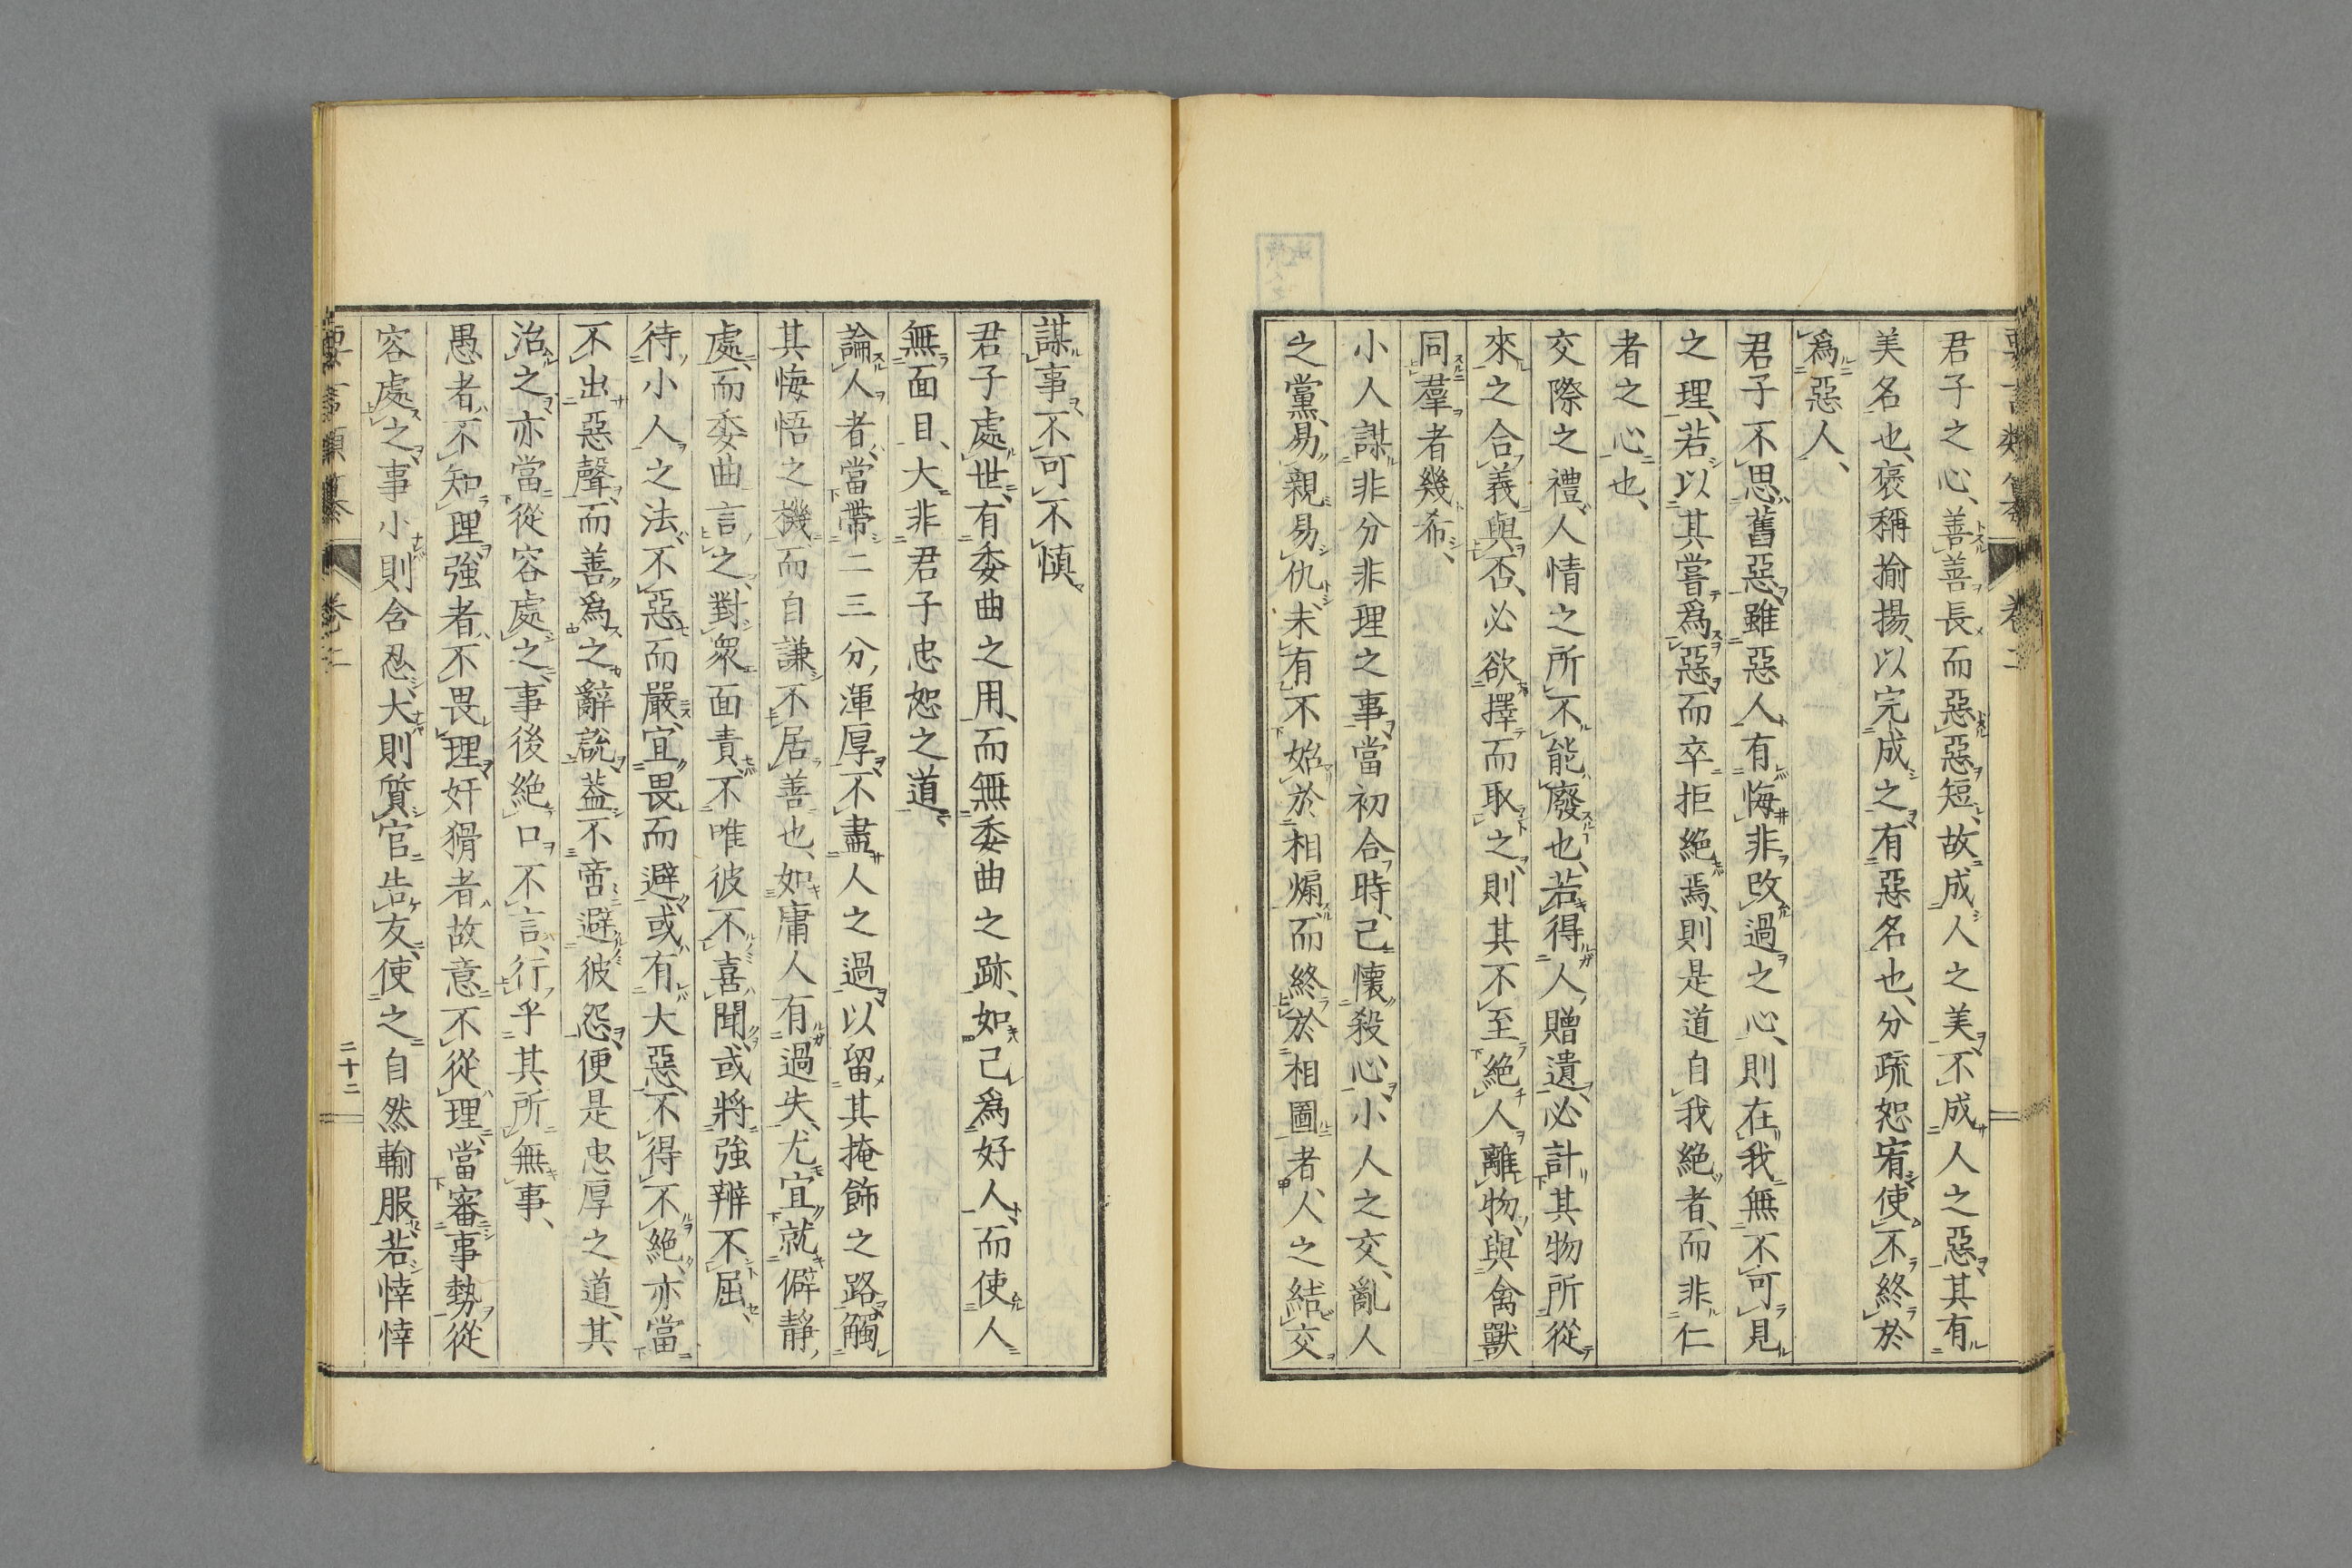 君子之心、善善長而惡惡短、故成人之美、不成人之惡其有
美名也、褒稱揄揚、以完成之、有惡名也、分疏恕宥使不終於
爲惡人、
君子不思舊惡、雖惡人有悔非改過之心、則在我無不可見
之理、若以其嘗爲惡而卒拒絕焉、則是道自我絕者、而非仁
者之心也、
交際之禮、人情之所不能廢也、若得人贈遺、必計其物所從
來之合義與否、必欲擇而取之、則其不至絕人離物、與禽獸
同羣者幾希、
小人謀非分非理之事、當初合時、已懷殺心、小人之交、亂人
之黨、易親易仇、未有不始於相煽、而終於相圖者、人之結交
謀事不可不愼、
君子處世、有委曲之用、而無委曲之跡、如己爲好人、而使人
無面目、大非君子忠恕之道、
論人者、當帶二三分渾厚、不盡人之過、以留其掩飾之路、觸
其悔悟之機、而自謙不居善也、如庸人有過失、尤宜就僻靜
處、而委曲言之、對衆面責、不唯彼不喜聞、或將強辨不屈、
待小人之法、不惡而嚴、宜畏而避、或有大惡、不得不絕、亦當
不出惡聲、而善爲之辭說、蓋不啻避彼怨、便是忠厚之道、其
治之亦當從容處之、事後絕口不言、行乎其所無事、
愚者不知理、強者不畏理、奸猾者故意不從理、當審事勢從
容處之、事小則含忍、大則質官告友、使之自然輸服、若悻悻
要言類纂 卷二
二十二